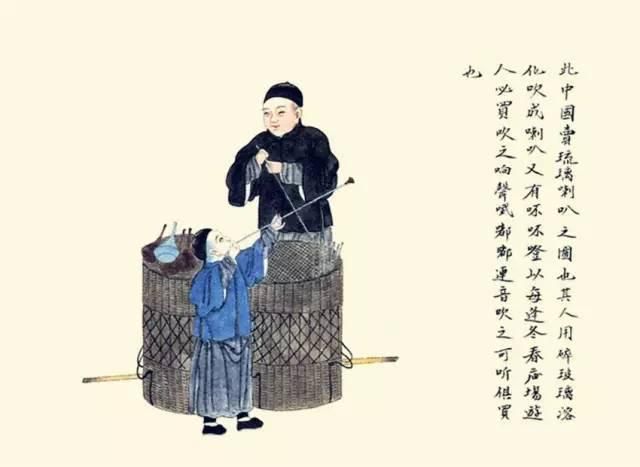 此中國賣琉璃喇叭之圖也其人用碎玻璃溶
化吹成喇叭又有吥吥噔以每逢冬春庙場遊
人必買吹之响聲嘟嘟連音吹之可听俱買
也